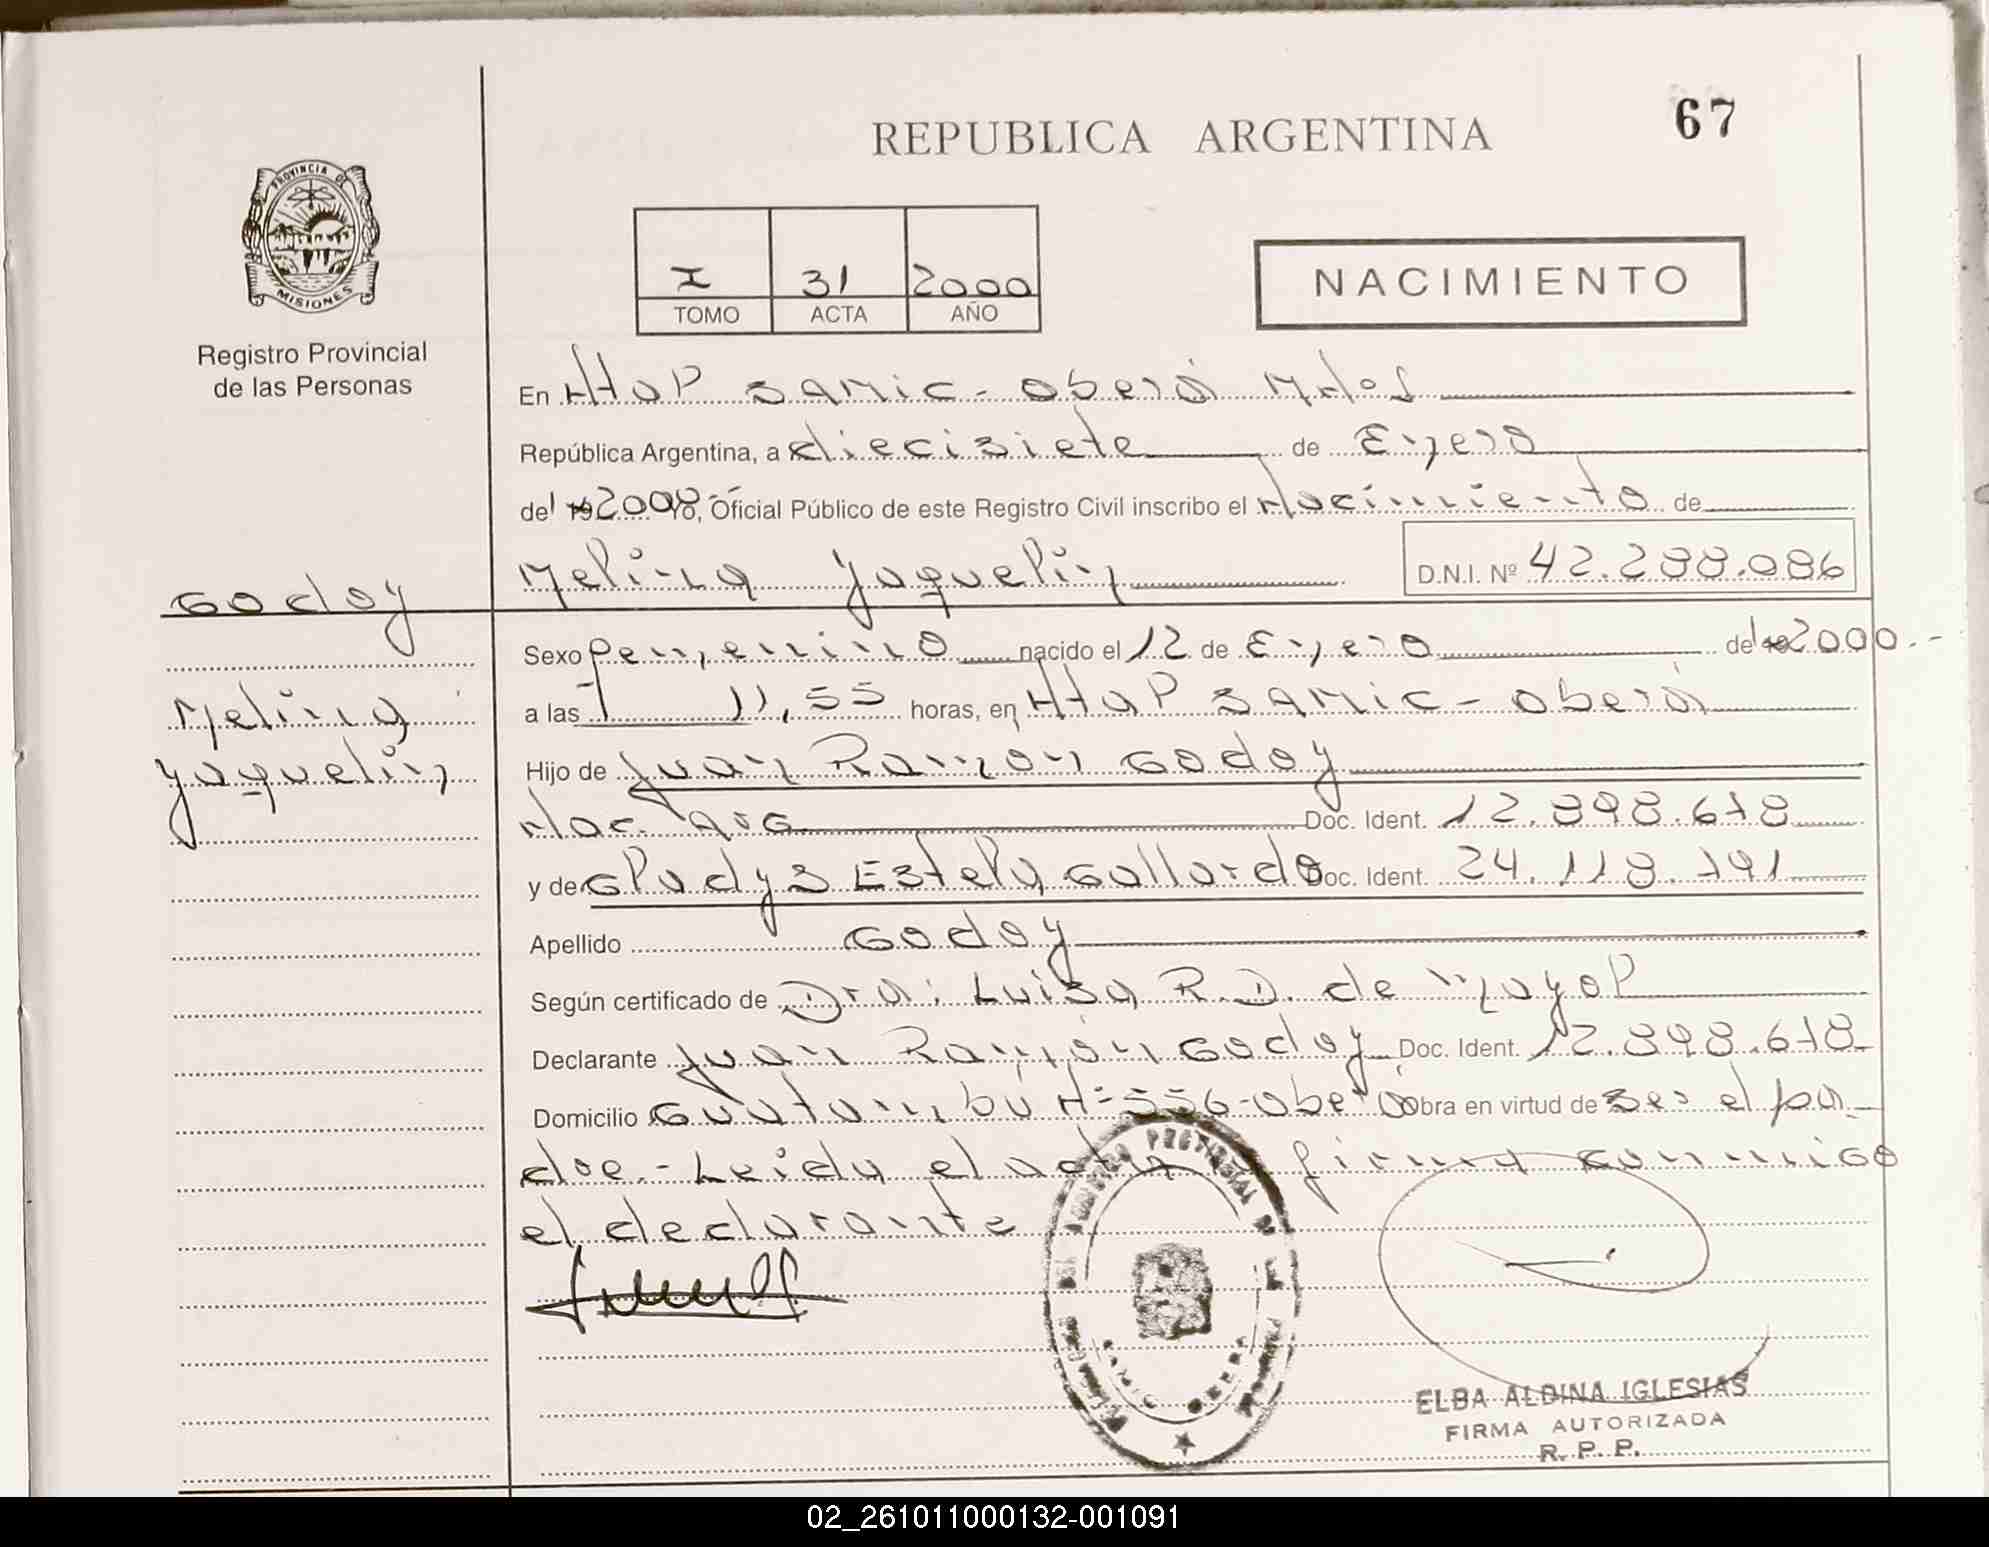 67
REPUBLICA ARGENTINA
PROVINCIA DE
MISIONES
Registro Provincial
de las Personas
I 31 2000
TOMO ACTA AÑO
NACIMIENTO
En Htal SAMIC - Oberá Mnes
República Argentina, a diecisiete de Enero
del 19 2000, Oficial Público de este Registro Civil inscribo el Nacimiento de
Melina Yaquelin D.N.I. Nº 42.288.086
Godoy
Sexo Femenino nacido el 12 de Enero del 19 2000.-
a las 11,55 horas, en Htal SAMIC - Oberá
Melina
Yaquelin
Hijo de Juan Ramon Godoy
Nac. Arg Doc. Ident. 12.898.678
y de Gladys Estela Gallardo Doc. Ident. 24.118.791
Apellido Godoy
Según certificado de Dra: Luisa R.D. de Mayol
Declarante Juan Ramón Godoy Doc. Ident. 12.898.678
Domicilio Guatambú Nº 556-Oberá Obra en virtud de ser el pa-
dre.- Leida el acta firma conmigo
el declarante
ELBA ALDINA IGLESIAS
FIRMA AUTORIZADA
R. P. P.
02_261011000132-001091